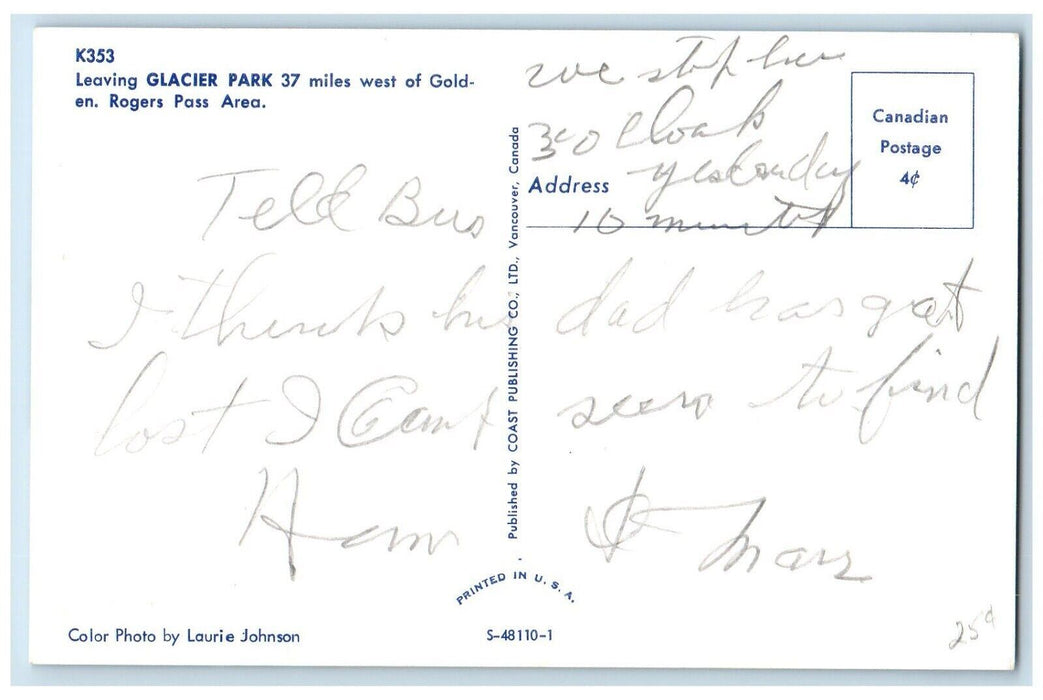 K353
Leaving GLACIER PARK 37 miles west of Gold-
en. Rogers Pass Area.
we stop here
3 o Cloak
yesterday
10 minutes
Canadian
Postage
4¢
Address
Tell Bus
I think his dad has got
lost I Cant seem to find
&
Published by COAST PUBLISHING CO., LTD., Vancouver, Canada
PRINTED IN U. S. A.
Color Photo by Laurie Johnson
S-48110-1
25¢